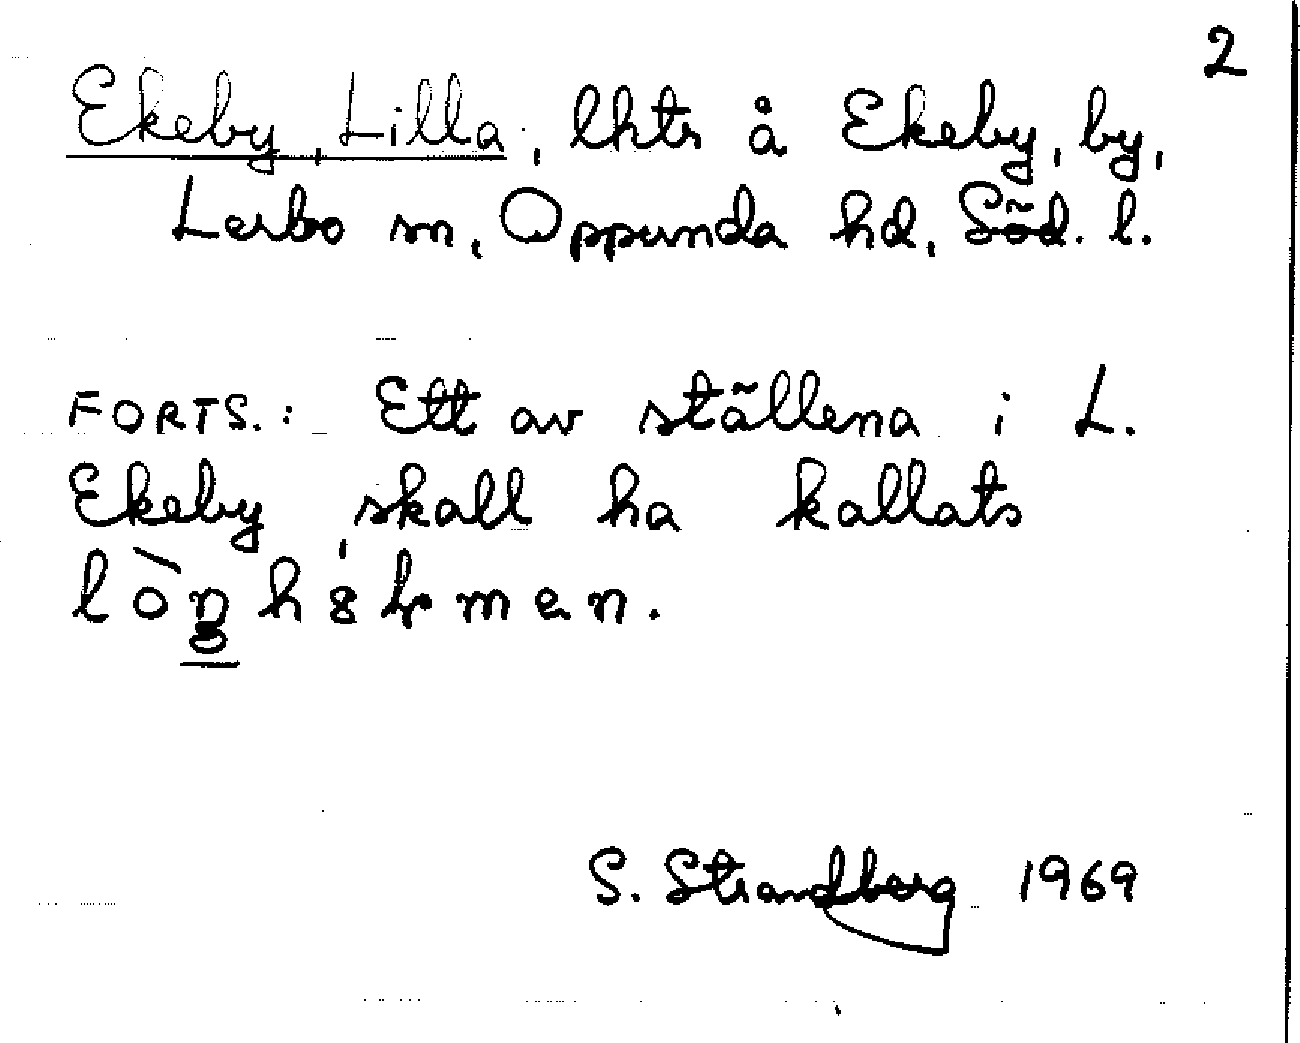 2
Ekeby, Lilla, lhtr å Ekeby, by,
Lerbo sn, Oppunda hd, Söd. l.
FORTS.: Ett av ställena i L.
Ekeby skall ha kallats
S. Strandberg 1969